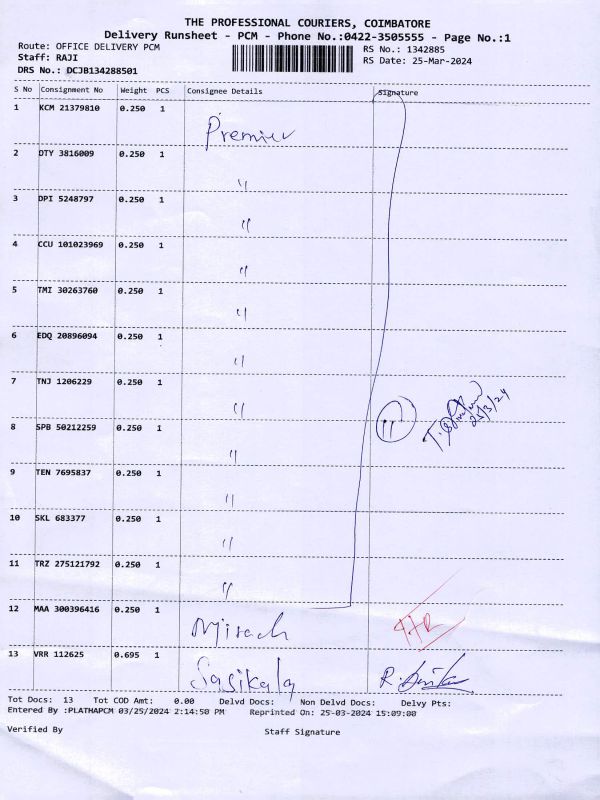 THE PROFESSIONAL COURIERS, COIMBATORE
Delivery Runsheet - PCM - Phone No.:0422-3505555 - Page No.:1
Route: OFFICE DELIVERY PCM
RS No.: 1342885
Staff: RAJI
RS Date: 25-Mar-2024
DRS No.: DCJB134288501
S No Consignment No Weight PCS Consignee Details Signature
1 KCM 21379810 0.250 1 Premier
2 DTY 3816009 0.250 1 "
3 DPI 5248797 0.250 1 "
4 CCU 101023969 0.250 1 "
5 TMI 30263760 0.250 1 "
6 EDQ 20896094 0.250 1 "
7 TNJ 1206229 0.250 1 "
8 SPB 50212259 0.250 1 " 11 25/3/24
9 TEN 7695837 0.250 1 "
10 SKL 683377 0.250 1 "
11 TRZ 275121792 0.250 1 "
12 MAA 300396416 0.250 1
13 VRR 112625 0.695 1 Sasikala
Tot Docs: 13 Tot COD Amt: 0.00 Delvd Docs: Non Delvd Docs: Delvy Pts:
Entered By :PLATHAPCM 03/25/2024 2:14:50 PM Reprinted On: 25-03-2024 15:09:00
Verified By Staff Signature